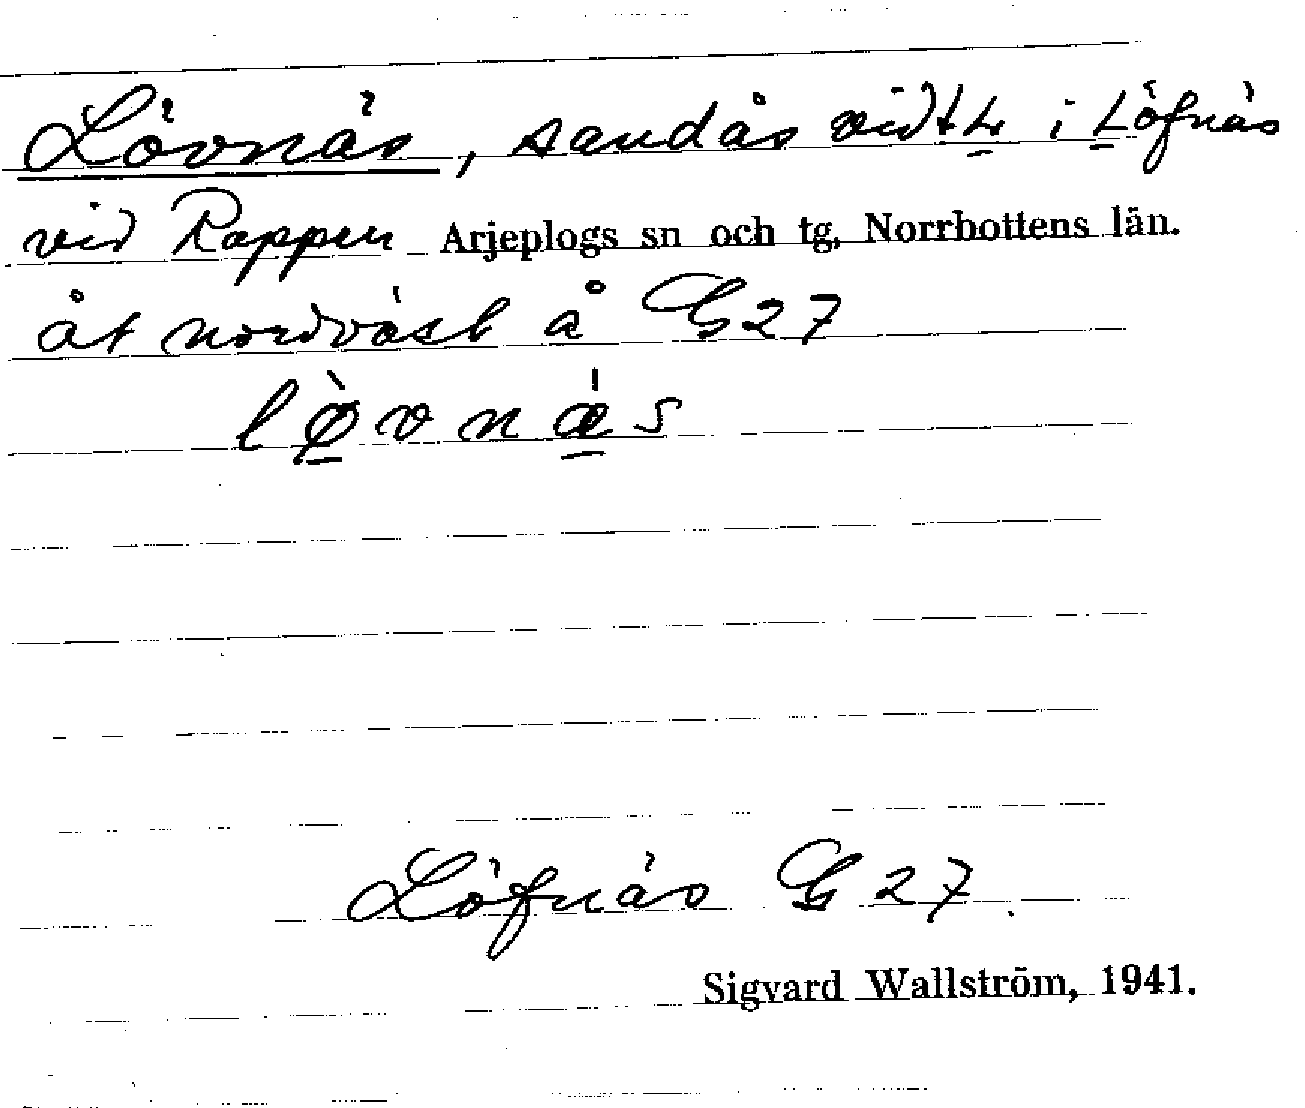 Lövnäs, sandås vid t L i Löfnäs
vid Rappen Arjeplogs sn och tg, Norrbottens län.
åt nordväst å G 27
lø̀vnǽs
Löfnäs G 27
Sigvard Wallström, 1941.